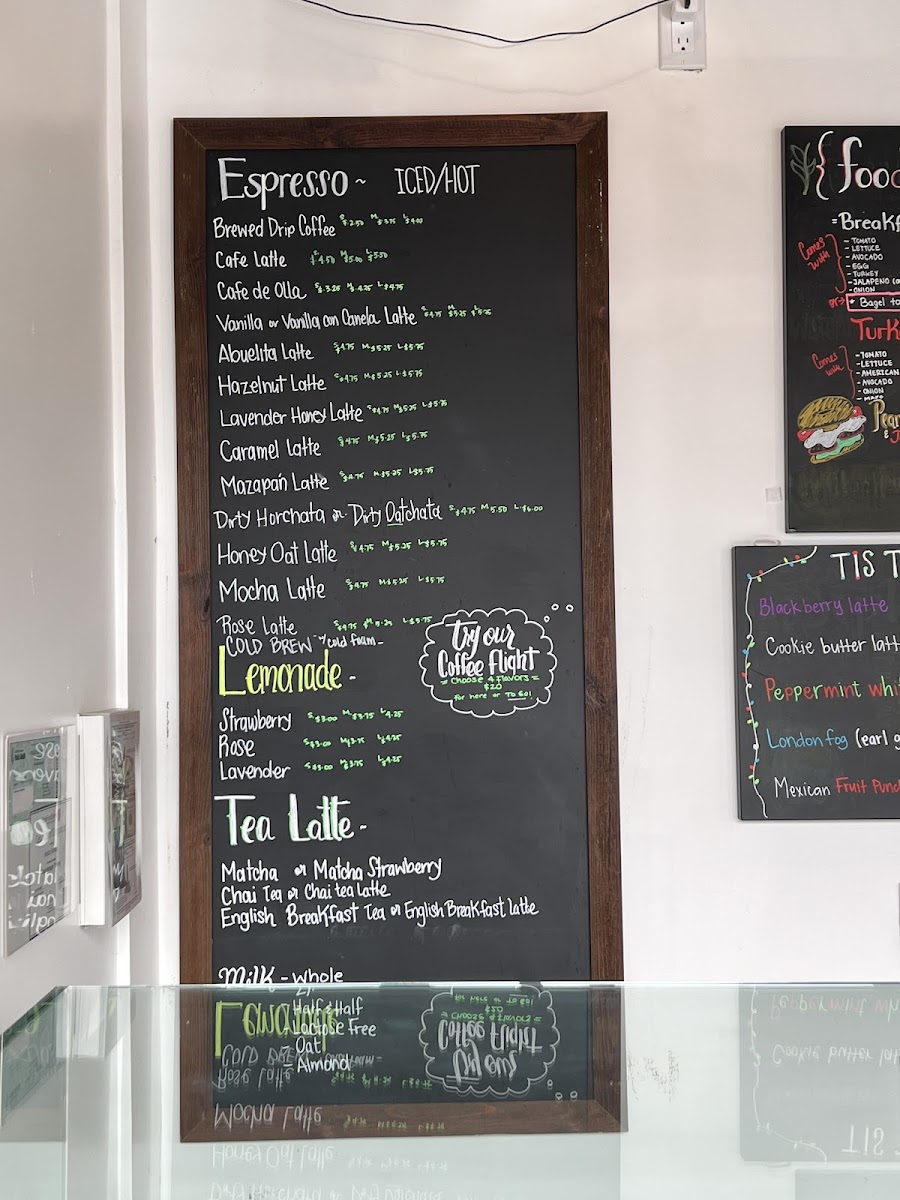 Espresso ~ ICED/HOT
Brewed Drip Coffee S $2.50 M $3.75 L $4.00
Cafe Latte $4.50 M $5.00 L $5.50
Cafe de Olla S $3.25 M $4.25 L $4.75
Vanilla or Vanilla con Canela Latte S $4.75 M $5.25
Abuelita Latte S $4.75 M $5.25 L $5.75
Hazelnut Latte S $4.75 M $5.25 L $5.75
Lavender Honey Latte S $4.75 M $5.25 L $5.75
Caramel Latte $4.75 M $5.25 L $5.75
Mazapán Latte S $4.75 M $5.25 L $5.75
Dirty Horchata or Dirty Oatchata S $4.75 M $5.50 L $6.00
Honey Oat Latte S $4.75 M $5.25 L $5.75
Mocha Latte S $4.75 M $5.25 L $5.75
Rose Latte S $4.75 M 5.25 L $5.75
COLD BREW w/cold foam -
Try our
Coffee Flight
= Choose 4 flavors =
$20
for here or To Go!
Lemonade -
Strawberry S $3.00 M $3.75 L 4.25
Rose S $3.00 M $3.75 L $4.25
Lavender S $3.00 M $3.75 L $4.25
Tea Latte -
Matcha or Matcha Strawberry
Chai Tea or Chai tea latte
English Breakfast Tea or English Breakfast latte
Milk - whole
2%
- Half & Half
- Lactose Free
- Oat
- Almond
{ foo
= Breakf
Comes with
- TOMATO
- LETTUCE
- AVOCADO
- EGG
- TURKEY
- JALAPENO
- ONION
* Bagel to
Turk
Comes with
- TOMATO
- LETTUCE
- AMERICAN
- AVOCADO
- ONION
- MAYO
Pean
& J
TIS T
Blackberry latte
Cookie butter latt
Peppermint whi
London fog (earl g
Mexican Fruit Punc